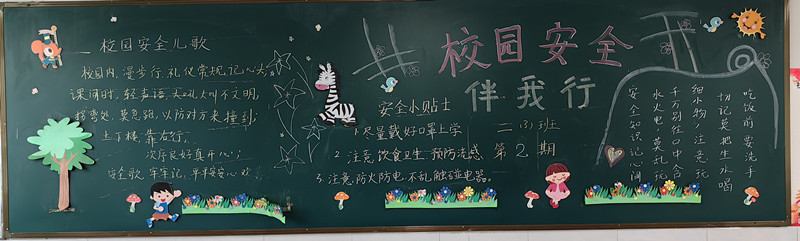 校园安全儿歌
校园内,漫步行,礼仪常规记心头,
课间时,轻声语,大吼大叫不文明,
拐弯处,莫急跑,以防对方来撞到,
上下楼,靠右行,
次序良好真开心;
安全歌,牢牢记,平平安安
校园安全
伴我行
二(3)班
第2期
安全小贴士
1.尽量戴好口罩上学
2.注意饮食卫生,预防流感
3.注意防火防电,不乱触碰电器。
吃饭前要洗手
切记莫把生水喝
细小物,注意玩
千万别往口中含
水火电莫乱玩
安全知识记心间